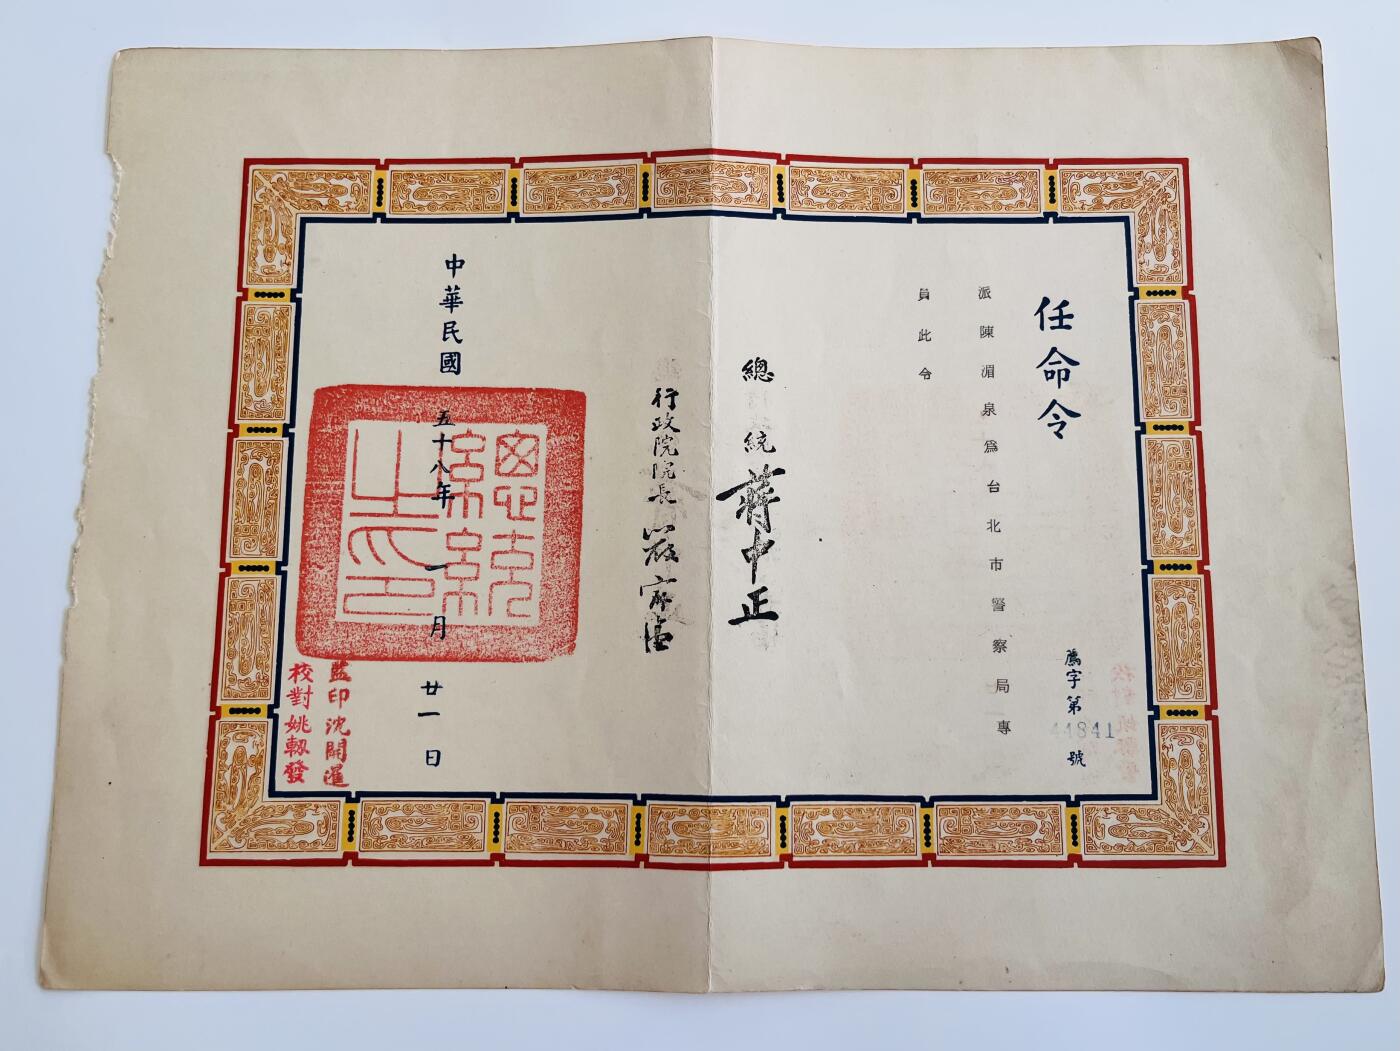 任命令
鷹字第44841號
派陳湄泉為台北市警察局專
員此令
總統 蔣中正
行政院院長 嚴家淦
中華民國五十八年一月廿一日
總統之印
監印沈開運
校對姚轫發